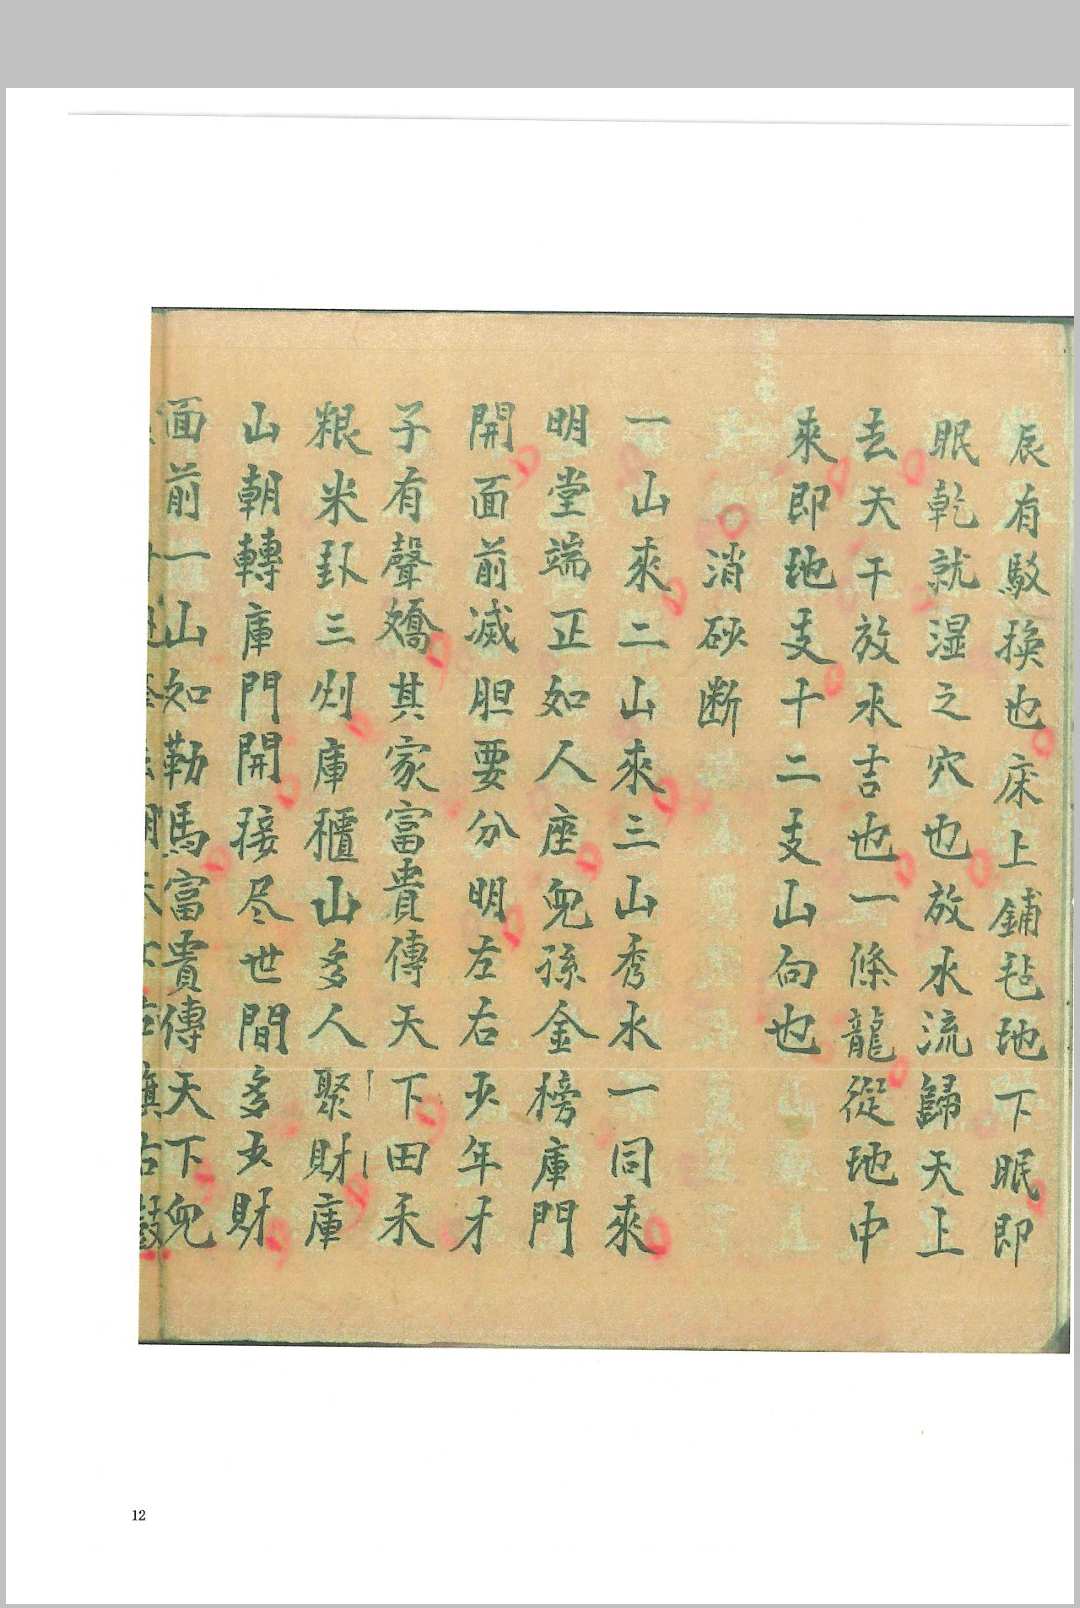 辰有駁換也床上鋪毡地下眠即
眠乾就湿之穴也放水流歸天上
去天干放水吉也一條龍從地中
來即地支十二支山向也
消砂断
一山來二山來三山秀水一同來
明堂端正如人座兒孫金榜庫門
開面前滅胆要分明左右少年才
子有聲嬌其家富貴傳天下田禾
粮米三庫櫃山多人聚財庫
山朝轉庫門開接尽世間多五財
面前一山如勒馬富貴傳天下兒
12